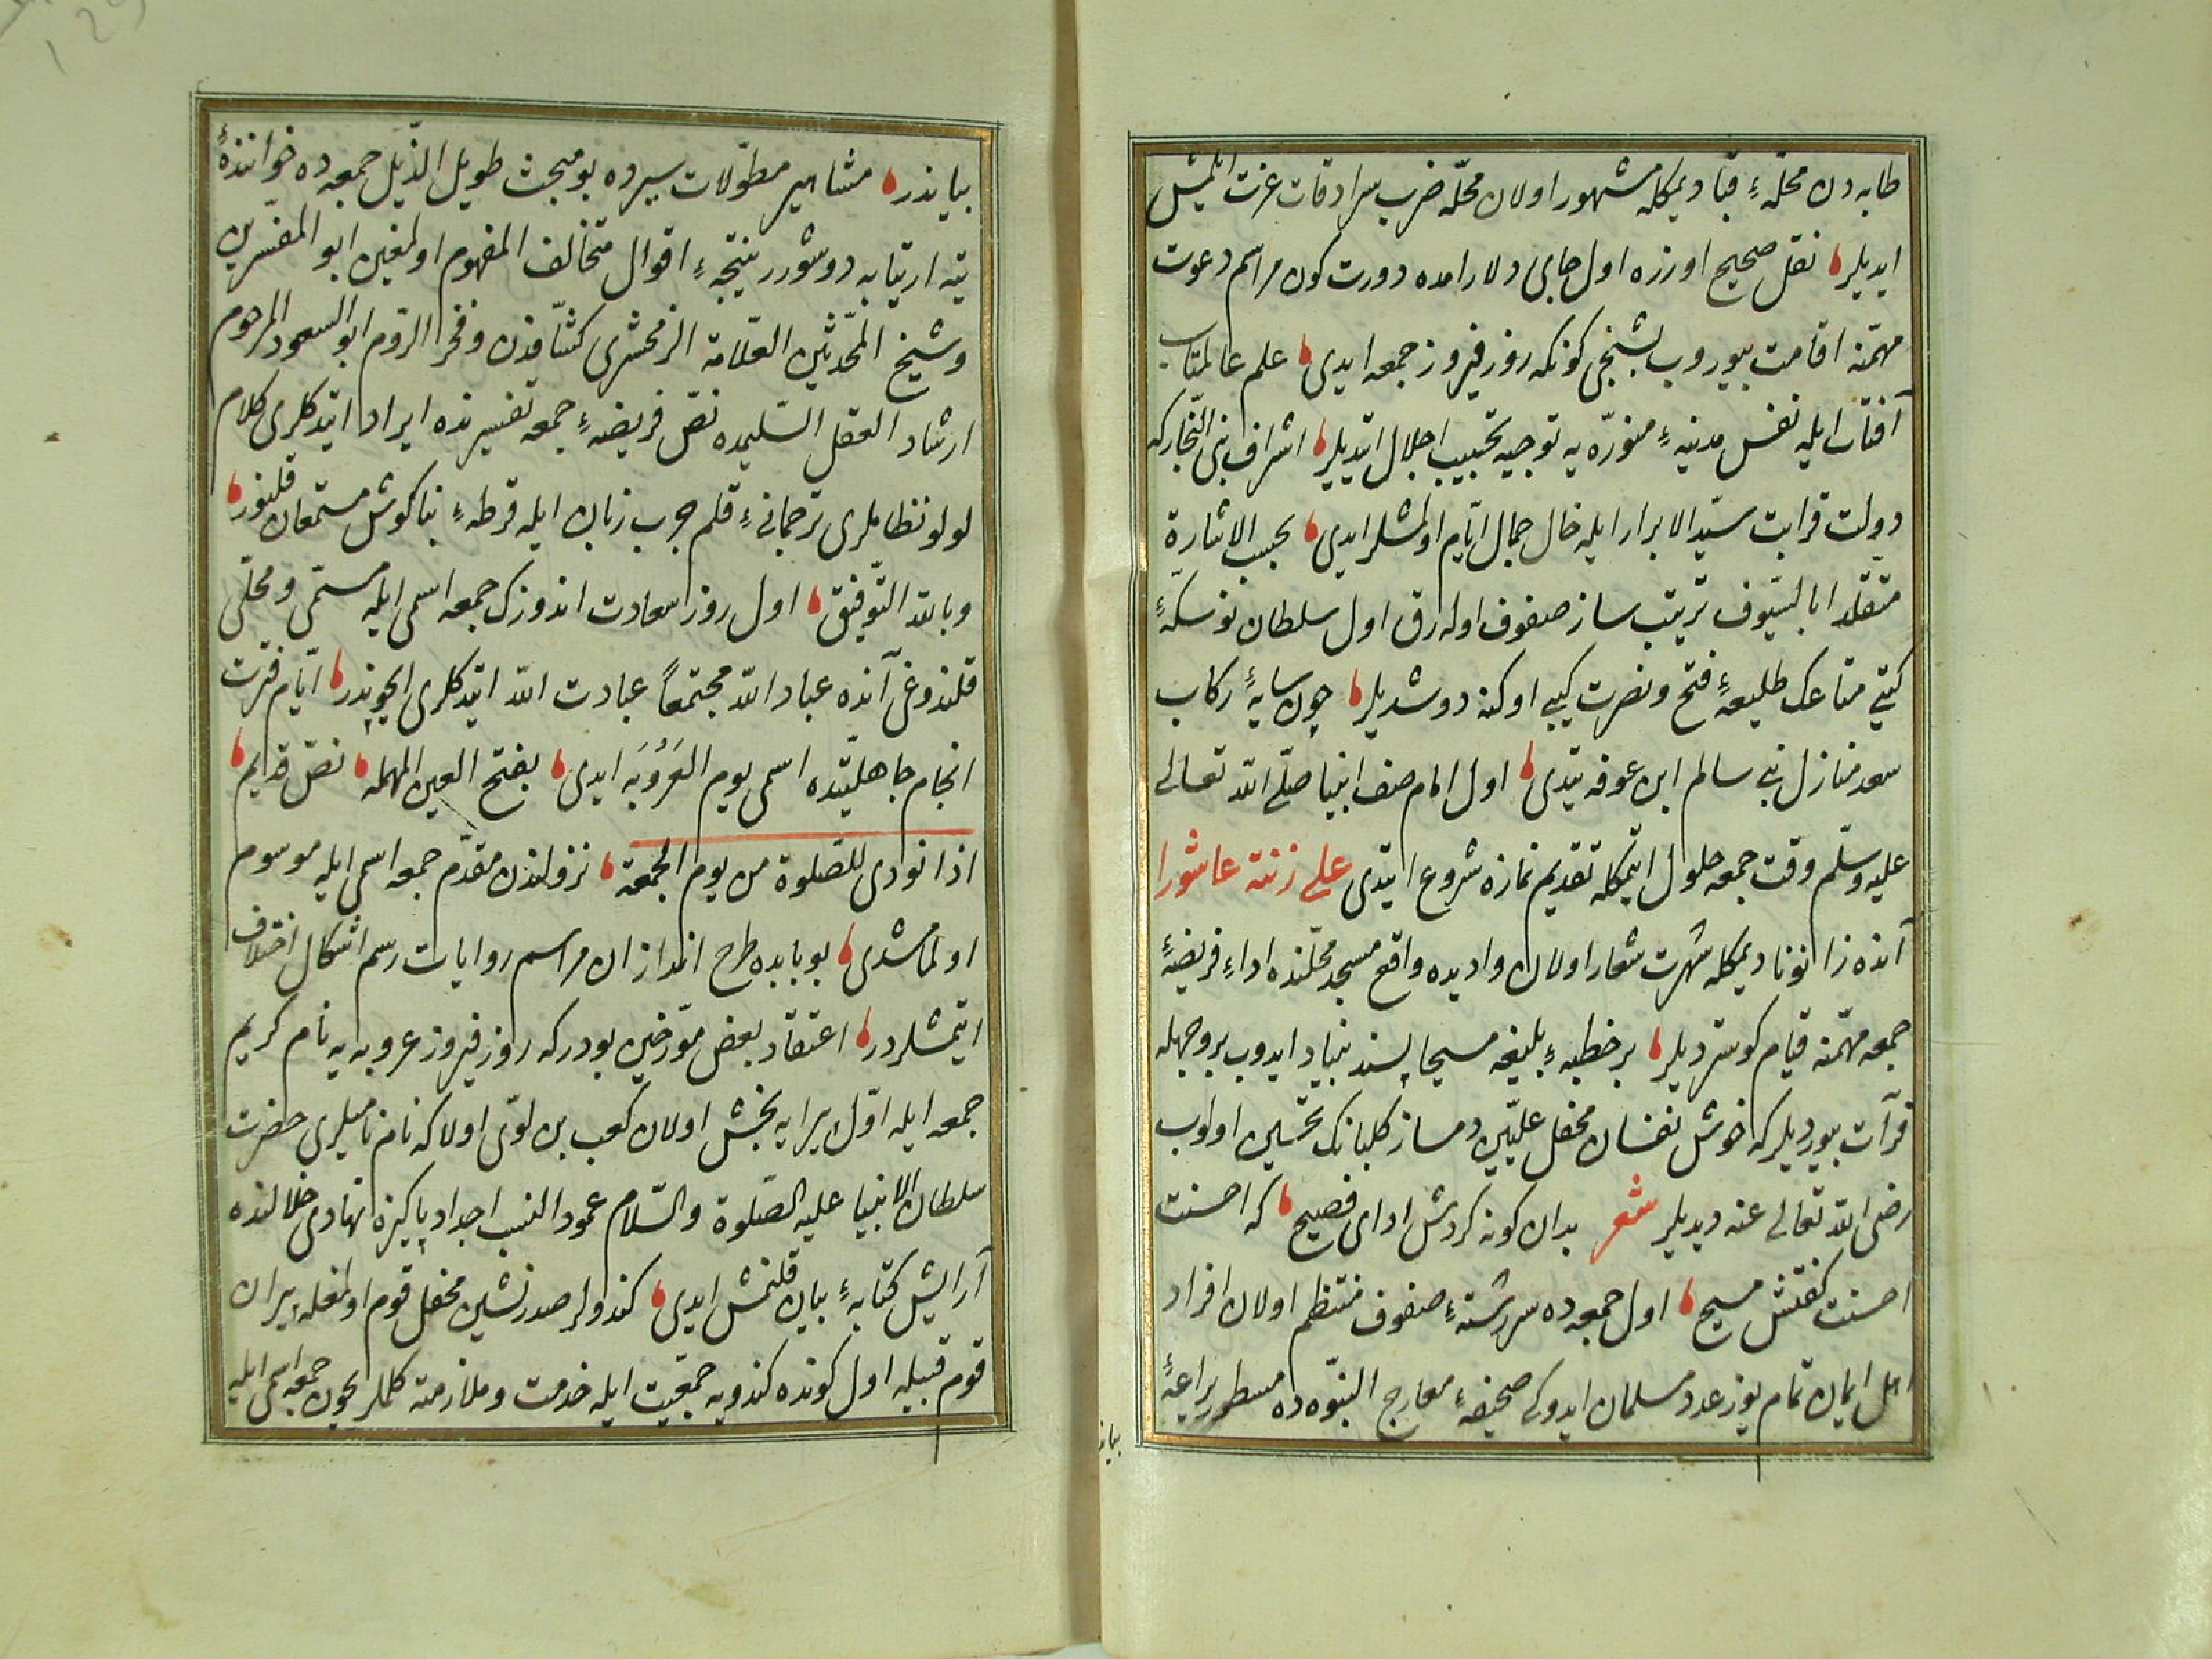 طابه دن محلّهٔ قبا ديمكله مشهور اولان محلّه ضرب سرادقات عزت ايلمش
ايديلر نقل صحيح اوزره اول جای دلارامده دورت كون مراسم دعوت
مهمّنه اقامت بيوروب بشنجی كونكه روز فيروز جمعه ايدی علم عالمتاب
آفتاب ايله نفس مدينهٔ منوّره يه توجيه نجيب اجلال ايتديلر اشراف بنی النّجار كه
دولت قرابت سيّد الابرار ايله خال جمال ايّام اولمشلر ايدی بحسب الاشارة
متقلّدا بالسّيوف ترتيب ساز صفوف اوله رق اول سلطان نو سكّهٔ
كيتی متاعك طليعهٔ فتح و نصرت كيبی اوكنه دوشديلر چون سايهٔ ركاب
سعد منازل بنی سالم ابن عوفه يتدی اول امام صف انبيا صلّی الله تعالی
عليه وسلّم وقت جمعه حلول ايتمكله تقديم نمازه شروع ايتدی علی زنته عاشورا
آنده زانونا ديمكله شهرت شعار اولان واديده واقع مسجد محلّنده اداء فريضهٔ
جمعه مهمّنه قيام كوستر ديلر بر خطبهٔ بليغه مسيحا پسند بنياد ايدوب بر وجهله
قرآت بيورديلر كه خوش نفسان محفل علّيّين دمساز كلبانك تحسين اولوب
رضی الله تعالی عنه ديديلر شعر بدان كونه كردش ادای فصيح كه احسنت
احسنت كفتش مسيح اول جمعه ده سر رشتهٔ صفوف منتظم اولان افراد
اهل ايمان تمام يوز عدد مسلمان ايدوكی صحيفهٔ معارج النبوّه ده مسطور يراعهٔ
بيا
بياندر مشاهير مطوّلات سيرده بو مبحث طويل الذّيل جمعه ده خوانندهٔ
تيه ارتيابه دوشورر نتيجهٔ اقوال متخالف المفهوم اولمغين ابو المفسّرين
وشيخ المحّدثين العلّامة الزمخشری كشّافدن وفخر الرّوم ابو السعود المرحوم
ارشاد العقل السّليمده نصّ فريضهٔ جمعه تفسيرنده ايراد ايتدكلری كلام
لولو نظاملری ترجمانیٔ قلم چرب زبان ايله قرطهٔ بناكوش مستمعان قلنور
وبالله التّوفيق اول روز سعادت اندوزك جمعه اسمی ايله مسمّی ومحلّی
قلندوغی آنده عباد الله مجتمعاً عبادت الله ايتدكلری ايچوندر ايّام فترت
انجام جاهليّتده اسمی يوم العَرُوبَه ايدی بفتح العين المهمله نصّ قديم
اذا نودی للصّلوة من يوم الجمعة نزولندن مقدّم جمعه اسمی ايله موسوم
اولمامشدی بو بابده طرح اندازان مراسم روايات رسم اشكال اختلاف
ايتمشلردر اعتقاد بعض مؤرّخين بودر كه روز فيروز عروبه يه نام كريم
جمعه ايله اوّل پيرايه بخش اولان كعب بن لوّی اولا كه نام ناميلری حضرت
سلطان الانبيا عليه الصّلوة والسّلام عمود النسب اجداد پاكيزه نهادی خلالنده
آرايش كتابهٔ بيان قلنمش ايدی كندولر صدر نشين محفل قوم اولمغله پيران
قوم قبيله اول كونده كندويه جمعيّت ايله خدمت وملازمته كلملريچون جمعه اسمی ايله